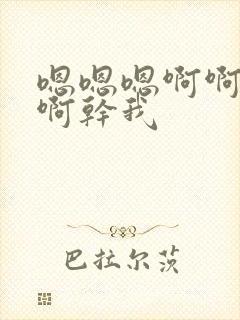 嗯嗯嗯啊啊
啊幹我
巴拉尔茨